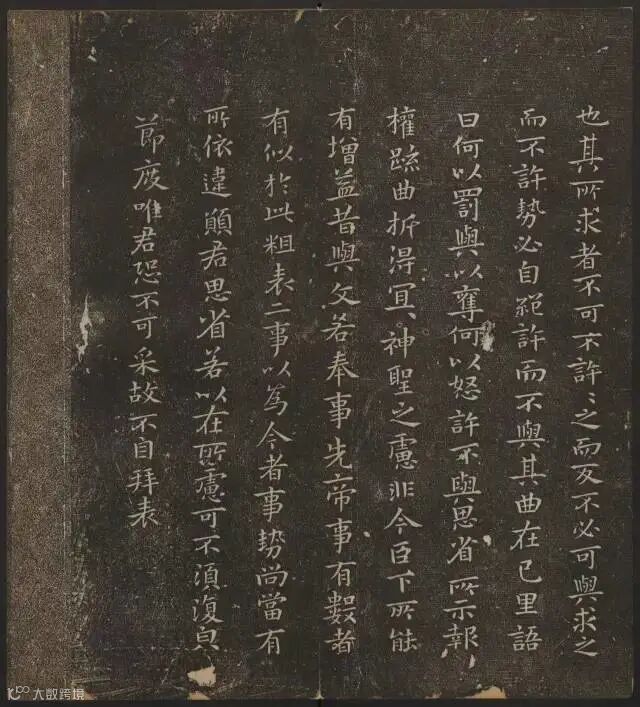 也其所求者不可不許〻之而反不必可與求之
而不許勢必自絕許而不與其曲在己里語
曰何以罰與以奪何以怒許不與思省所示報
權疏曲折得宜神聖之慮非今臣下所能
有增益昔與文若奉事先帝事有數者
有似於此粗表二事以為今者事勢尚當有
所依違願君思省若以在所慮可不須復皃
節度唯君恐不可采故不自拜表
大数跨境